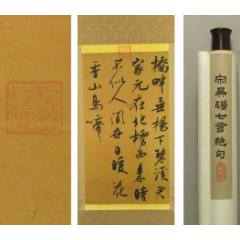 橋畔垂楊下碧溪君
家元在北橋西來時
不似人間世日暖花
香山鳥啼
宋吳琚七言絶句